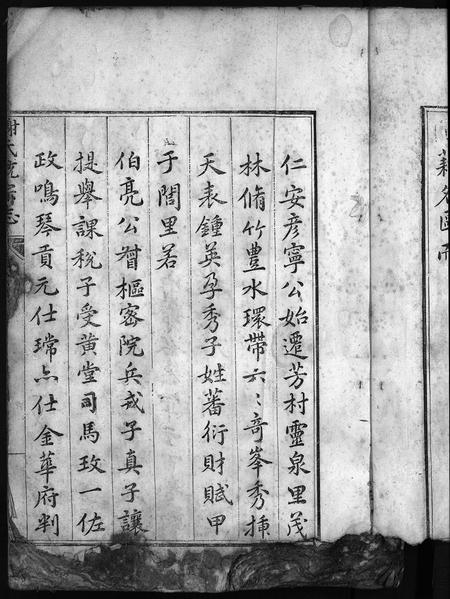 仁安彦寧公始遷芳村靈泉里茂
林脩竹豊水環帶六〻竒峯秀揷
天表鍾英孕秀子姓蕃衍財賦甲
于閭里若
伯亮公晉樞密院兵戎子真子讓
提舉課稅子受黄堂司馬玫一佐
政鳴琴貢元仕瑺亦仕金華府判